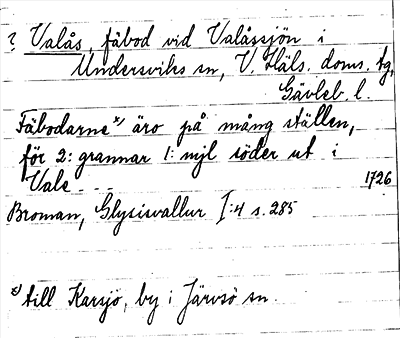 ? Valås, fäbod vid Valåssjön i
Undersviks sn, V. Häls. doms. tg,
Gävleb. l.
Fäbodarne x) äro på mång ställen,
för 2: grannar 1: mjl söder ut i
Vale - - - 1726
Broman, Glysisvallur I:4 s. 285
x) till Karsjö, by i Järvsö sn.